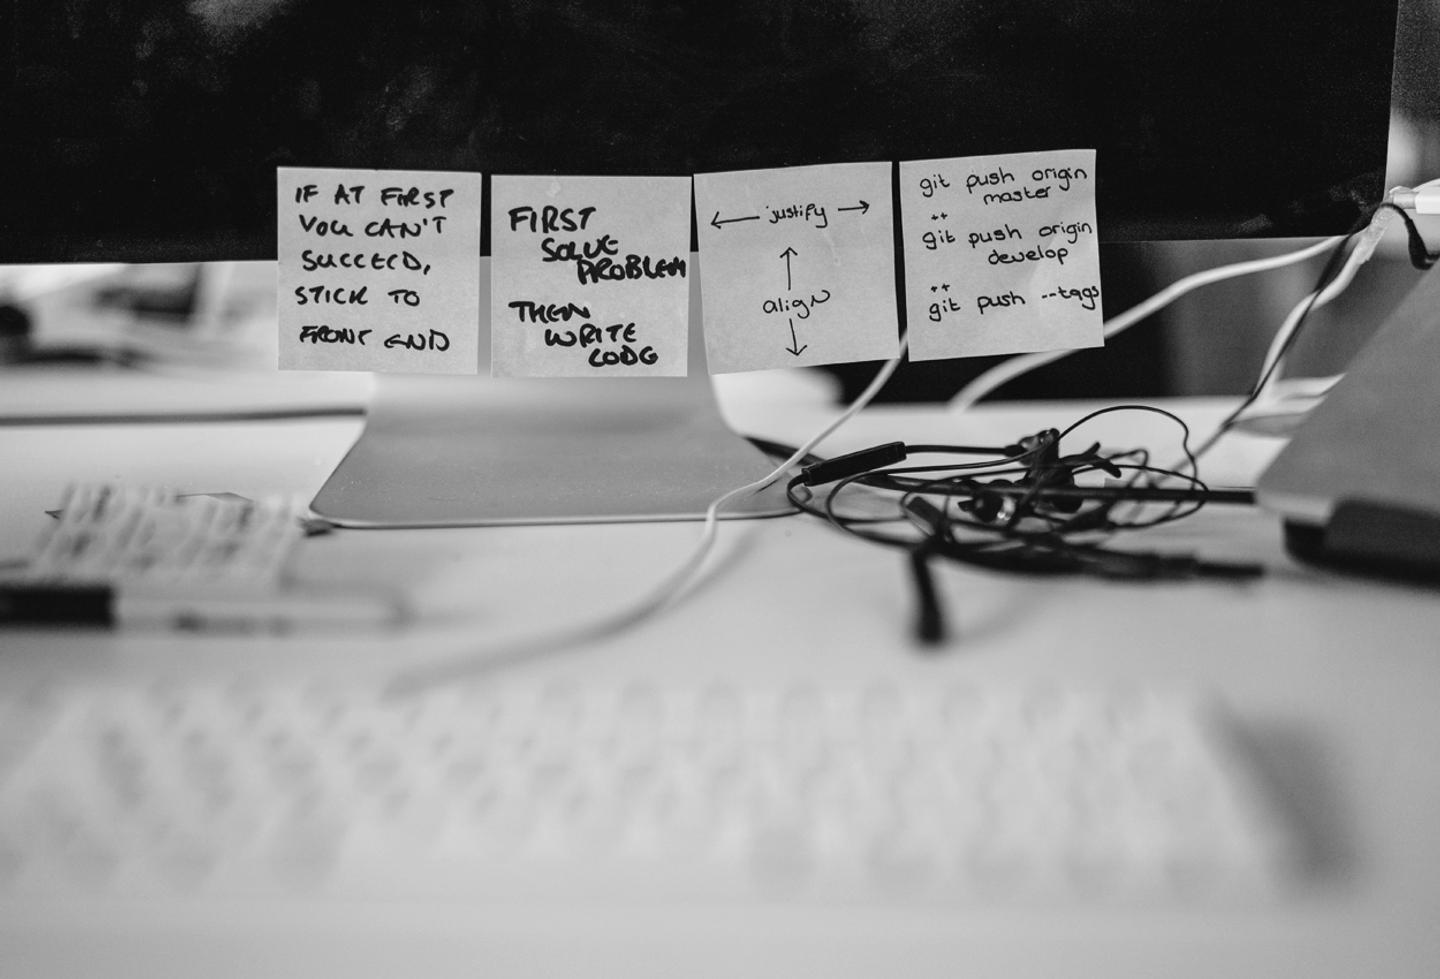 IF AT FIRST
YOU CAN'T
SUCCEED,
STICK TO
FRONT END
FIRST
SOLVE
PROBLEM
THEN
WRITE
CODE
← justify →
↑
align
↓
git push origin
master
++
git push origin
develop
++
git push --tags